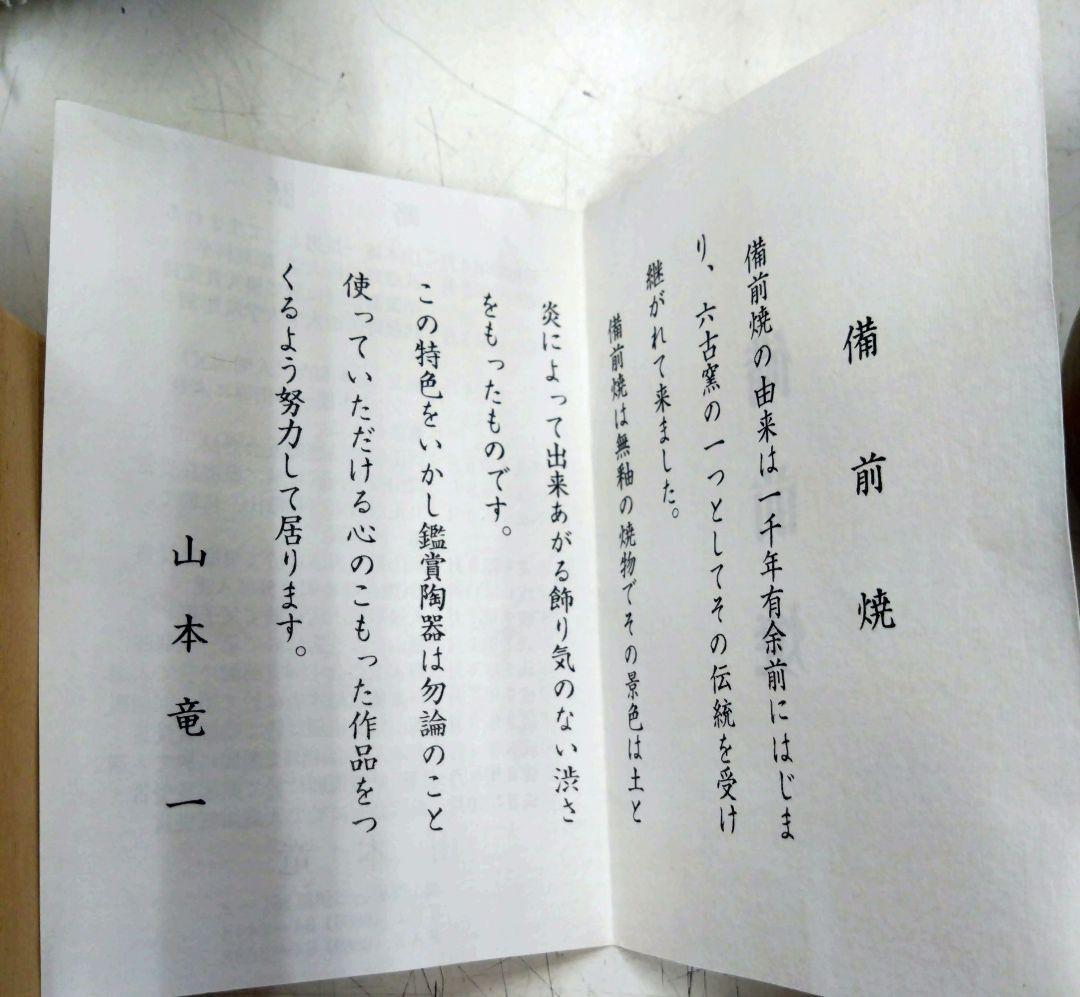 備前焼
備前焼の由来は一千年有余前にはじま
り、六古窯の一つとしてその伝統を受け
継がれて来ました。
備前焼は無釉の焼物でその景色は土と
炎によって出来あがる飾り気のない渋さ
をもったものです。
この特色をいかし鑑賞陶器は勿論のこと
使っていただける心のこもった作品をつ
くるよう努力して居ります。
山本竜一